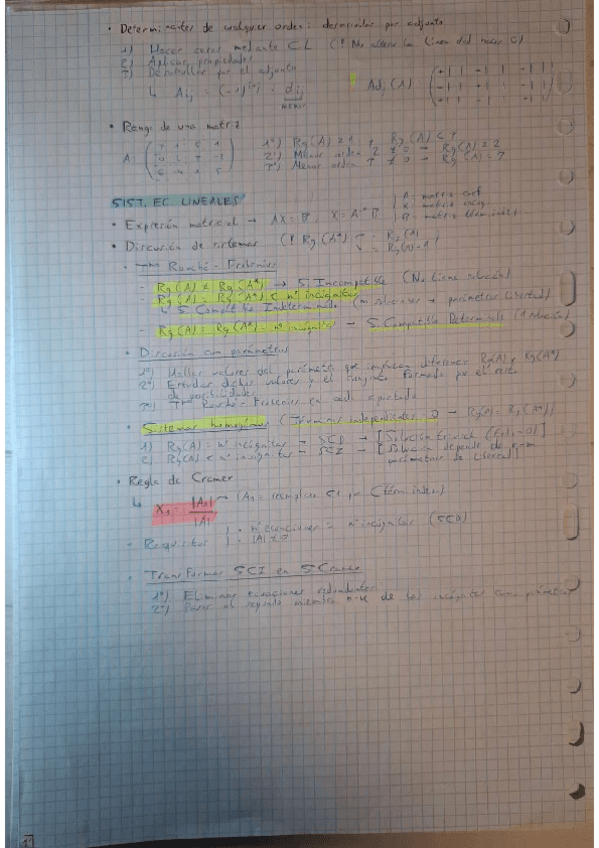 • Determinantes de cualquier orden: desarrollar por adjunto
1) Hacer ceros mediante CL (! No alterar la línea del hacer 0)
2) Aplicar propiedades
3) Desarrollar por el adjunto
↳ Aij = (-1)^(i+j) · dij Adj (A)
MENOR
• Rango de una matriz
A 1º) Rg(A) ≥ 1 , Rg(A) ≤ 3
2º) Menor orden 2 ≠ 0 → Rg(A) ≥ 2
3º) Menor orden 3 ≠ 0 → Rg(A) = 3
SIST. EC. LINEALES
A = matriz coef
• Expresión matricial → AX = B , X = A⁻¹ B X = matriz incóg
B = matriz términos
• Discusión de sistemas (! Rg(A*) = Rg(A)
= Rg(A)+1)
- Tma Rouché - Frobenius
- Rg(A) ≠ Rg(A*) → S. Incompatible (No tiene solución)
- Rg(A) = Rg(A*) < nº incógnitas
↳ S. Compatible Indeterminado (∞ soluciones → parámetros libertad)
- Rg(A) = Rg(A*) = nº incógnitas → S. Compatible Determinado (1 solución)
• Discusión con parámetros
1º) Hallar valores del parámetro que impliquen diferencia Rg(A) y Rg(A*)
2º) Estudiar dichos valores y el conjunto formado por el resto
de posibilidades
3º) Tma Rouché - Frobenius en cada apartado
• Sistemas homogéneos (Términos independientes = 0 → Rg(A) = Rg(A*))
1) Rg(A) = nº incógnitas → SCD → [Solución trivial
2) Rg(A) < nº incógnitas → SCI → [Solución depende de n-m
parámetros de libertad]
• Regla de Cramer
↳ X₁ = |A₁| / |A| → (A₁ = reemplazar C1 por C térm indep)
- Requisitos • nº ecuaciones = nº incógnitas (SCD)
• |A| ≠ 0
• Transformar SCI en S Cramer
1º) Eliminar ecuaciones redundantes
2º) Pasar al segundo miembro n-k de las incógnitas como parámetros